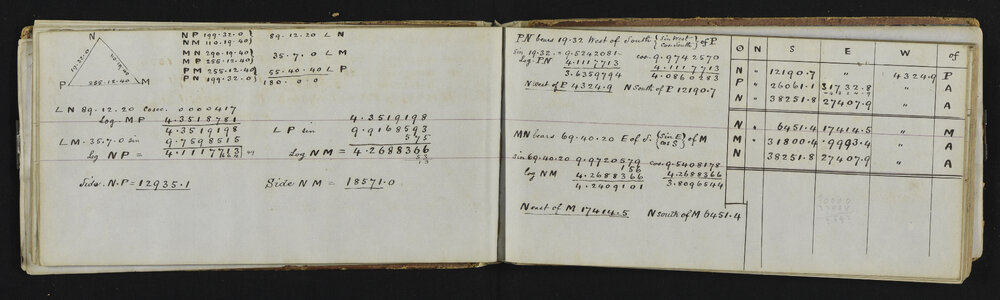 N
P 255.12.40 M
N P 199.32.0
N M 110.19.40
M N 290.19.40
M P 255.12.40
P M 255.12.40
P N 199.32.0
89.12.20 L N
35.7.0 L M
55.40.40 L P
180.0.0
L N 89.12.20 Cosec. 0.000417
Log MP 4.3518781
4.3519198
L M. 35.7.0 sin 9.7598515
Log NP = 4.1117713
Side. N.P = 12935.1
4.3519198
L P sin 9.9168593
575
Log NM = 4.2688366
Side NM = 18571.0
PN bears 19.32 West of South {Sin West Cos. South} of P
Sin 19.32 = 9.5242081 cos. 9.9742570
Log. PN 4.1117713 4.1117713
3.6359794 4.0860283
N west of P 4324.9 N South of P 12190.7
MN bears 69.40.20 E of S. {Sin E cos S} of M
sin 69.40.20 9.9720579 cos. 9.5408178
156
log NM 4.2688366 4.2688366
4.2409101 3.8096544
N east of M 17414.5 N south of M 6451.4
N S E W of
N " 12190.7 " 4324.9 P
P " 26061.1 31732.8 " A
N " 38251.8 27407.9 " A
N " 6451.4 17414.5 " M
M " 31800.4 9993.4 " A
N " 38251.8 27407.9 " A